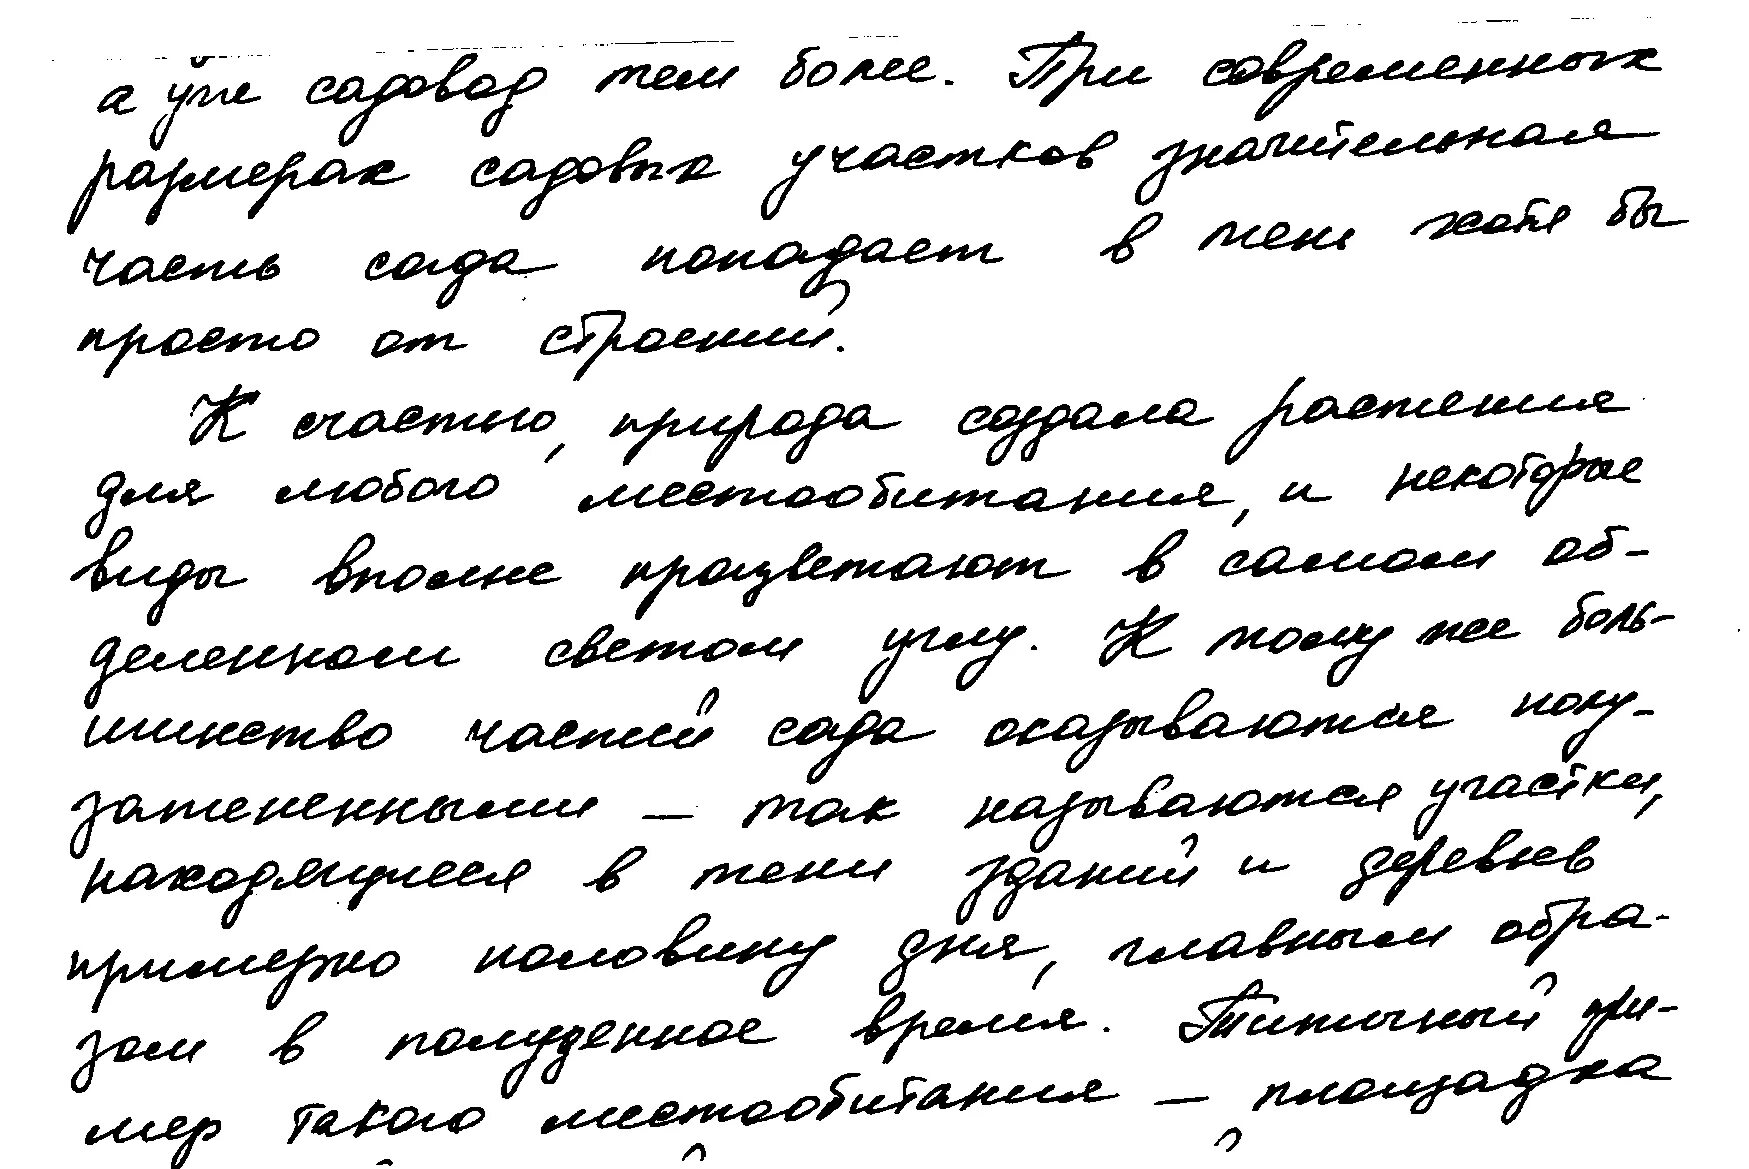 а уже садовод тем более. При современных
размерах садовых участков значительная
часть сада попадает в тень хотя бы
просто от строений.
К счастью, природа создала растения
для любого местообитания, и некоторые
виды вполне процветают в самом об-
деленном светом углу. К тому же боль-
шинство частей сада оказываются полу-
затененными — так называются участки,
находящиеся в тени зданий и деревьев
примерно половину дня, главным обра-
зом в полуденное время. Типичный при-
мер такого местообитания — площадка